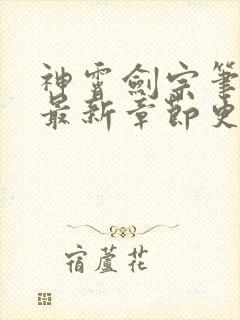 神霄劍宗筆
最新章節史
宿蘆花